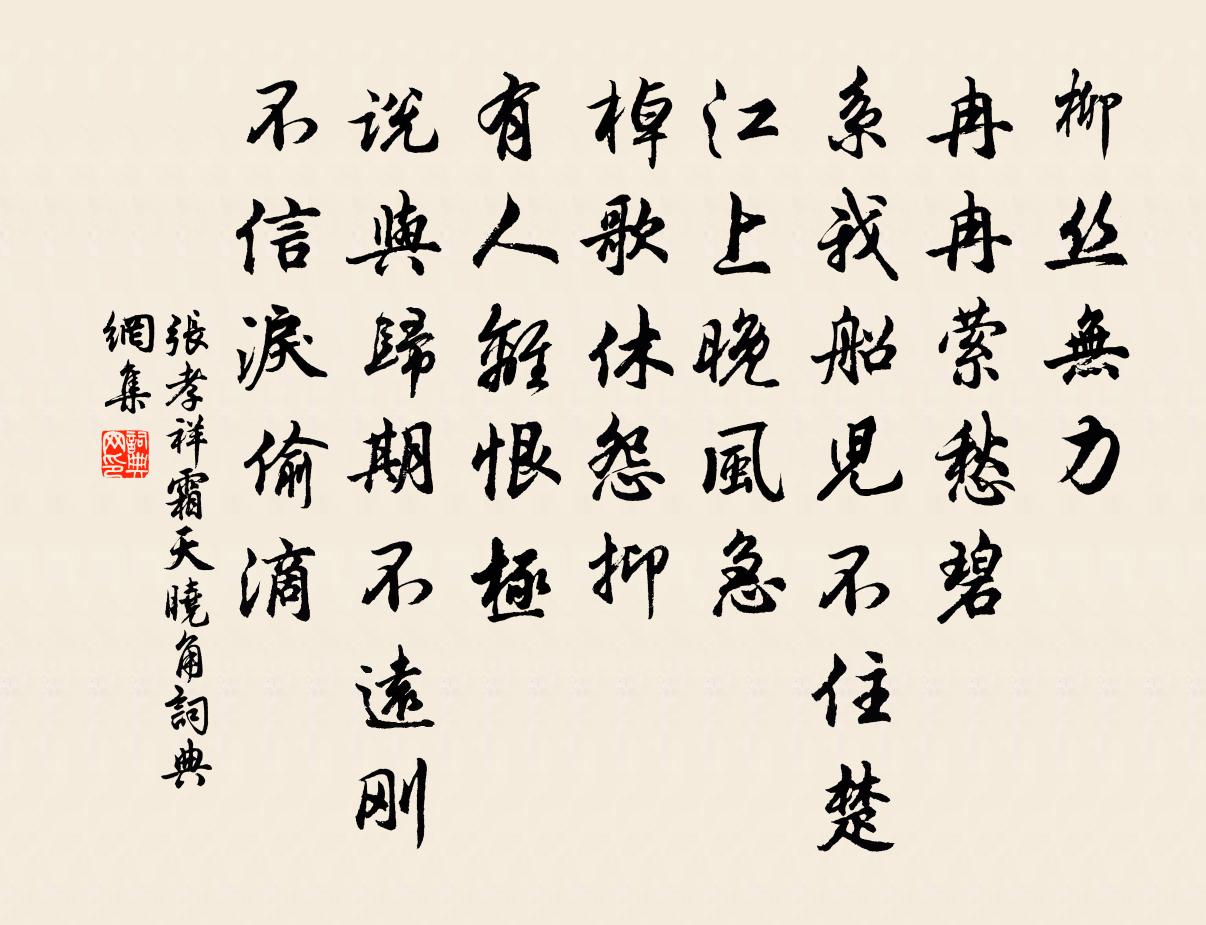 柳丝無力
冉冉萦愁碧
系我船児不住楚
江上晚風急
棹歌休怨抑
有人離恨極
説與歸期不遠刚
不信淚偷滴
張孝祥霜天曉角詞典
網集
詞典
网印